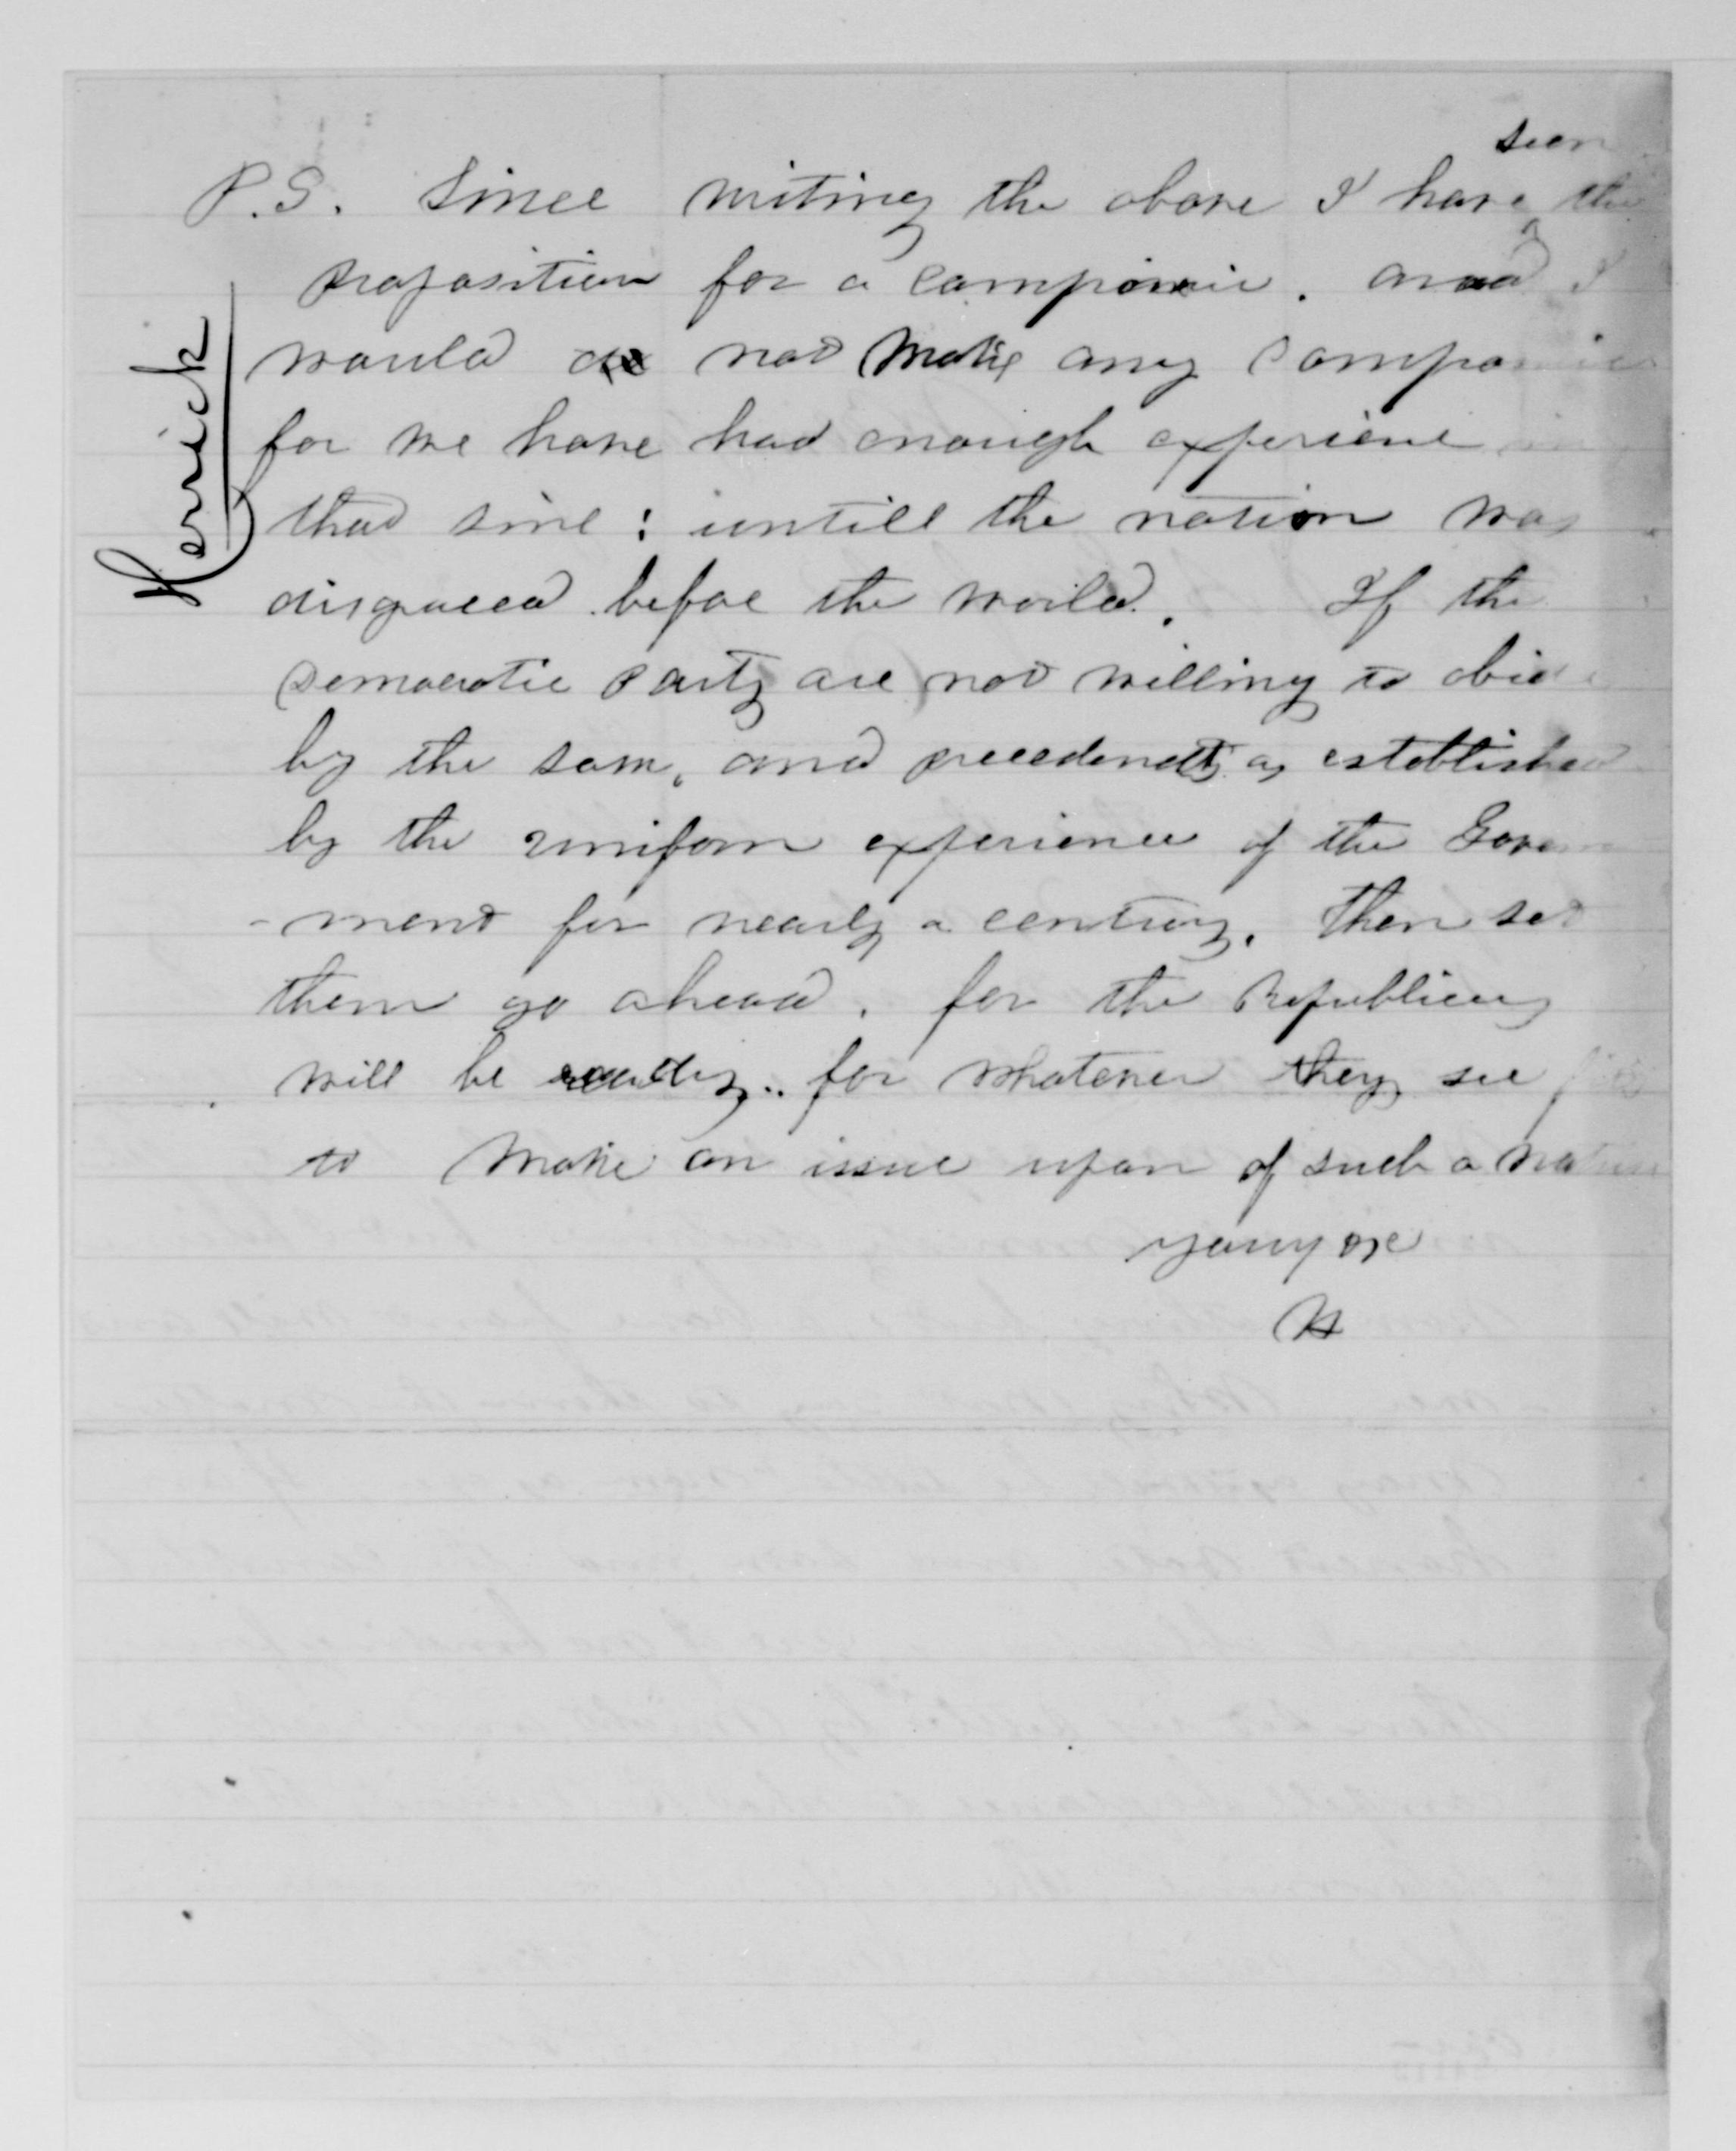 seen
P.S. Since writing the above I have the
proposition for a compromie. and I
would not make any compromie
for we have had enough experiene in
that line: untill the nation was
disgraced before the world. If the
Democratic Party are not willing to abide
by the and precedents as established
by the uniform experience of the Govern
-ment for nearly a century. Then let
them go ahead. for the Republicans
will be ready. for whatever they see fit
to make an issue upon of such a nature
yours &c
H
Herrick